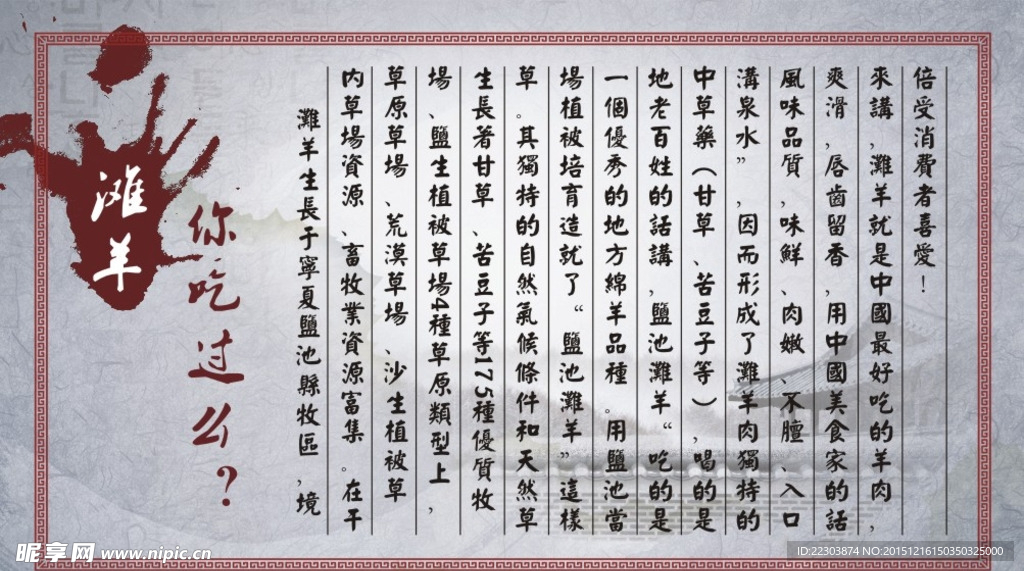 滩羊
你吃过么?
灘羊生長于寧夏鹽池縣牧區,境
内草場資源、畜牧業資源富集。在干
草原草場、荒漠草場、沙生植被草
場、鹽生植被草場4種草原類型上,
生長著甘草、苦豆子等175種優質牧
草。其獨特的自然氣候條件和天然草
場植被培育造就了“鹽池灘羊”這樣
一個優秀的地方綿羊品種。用鹽池當
地老百姓的話講,鹽池灘羊“吃的是
中草藥(甘草、苦豆子等),喝的是
溝泉水”,因而形成了灘羊肉獨特的
風味品質,味鮮、肉嫩、不膻、入口
爽滑,唇齒留香,用中國美食家的話
來講,灘羊就是中國最好吃的羊肉,
倍受消費者喜愛!
昵享网 www.nipic.cn
ID:22303874 NO:20151216150350325000